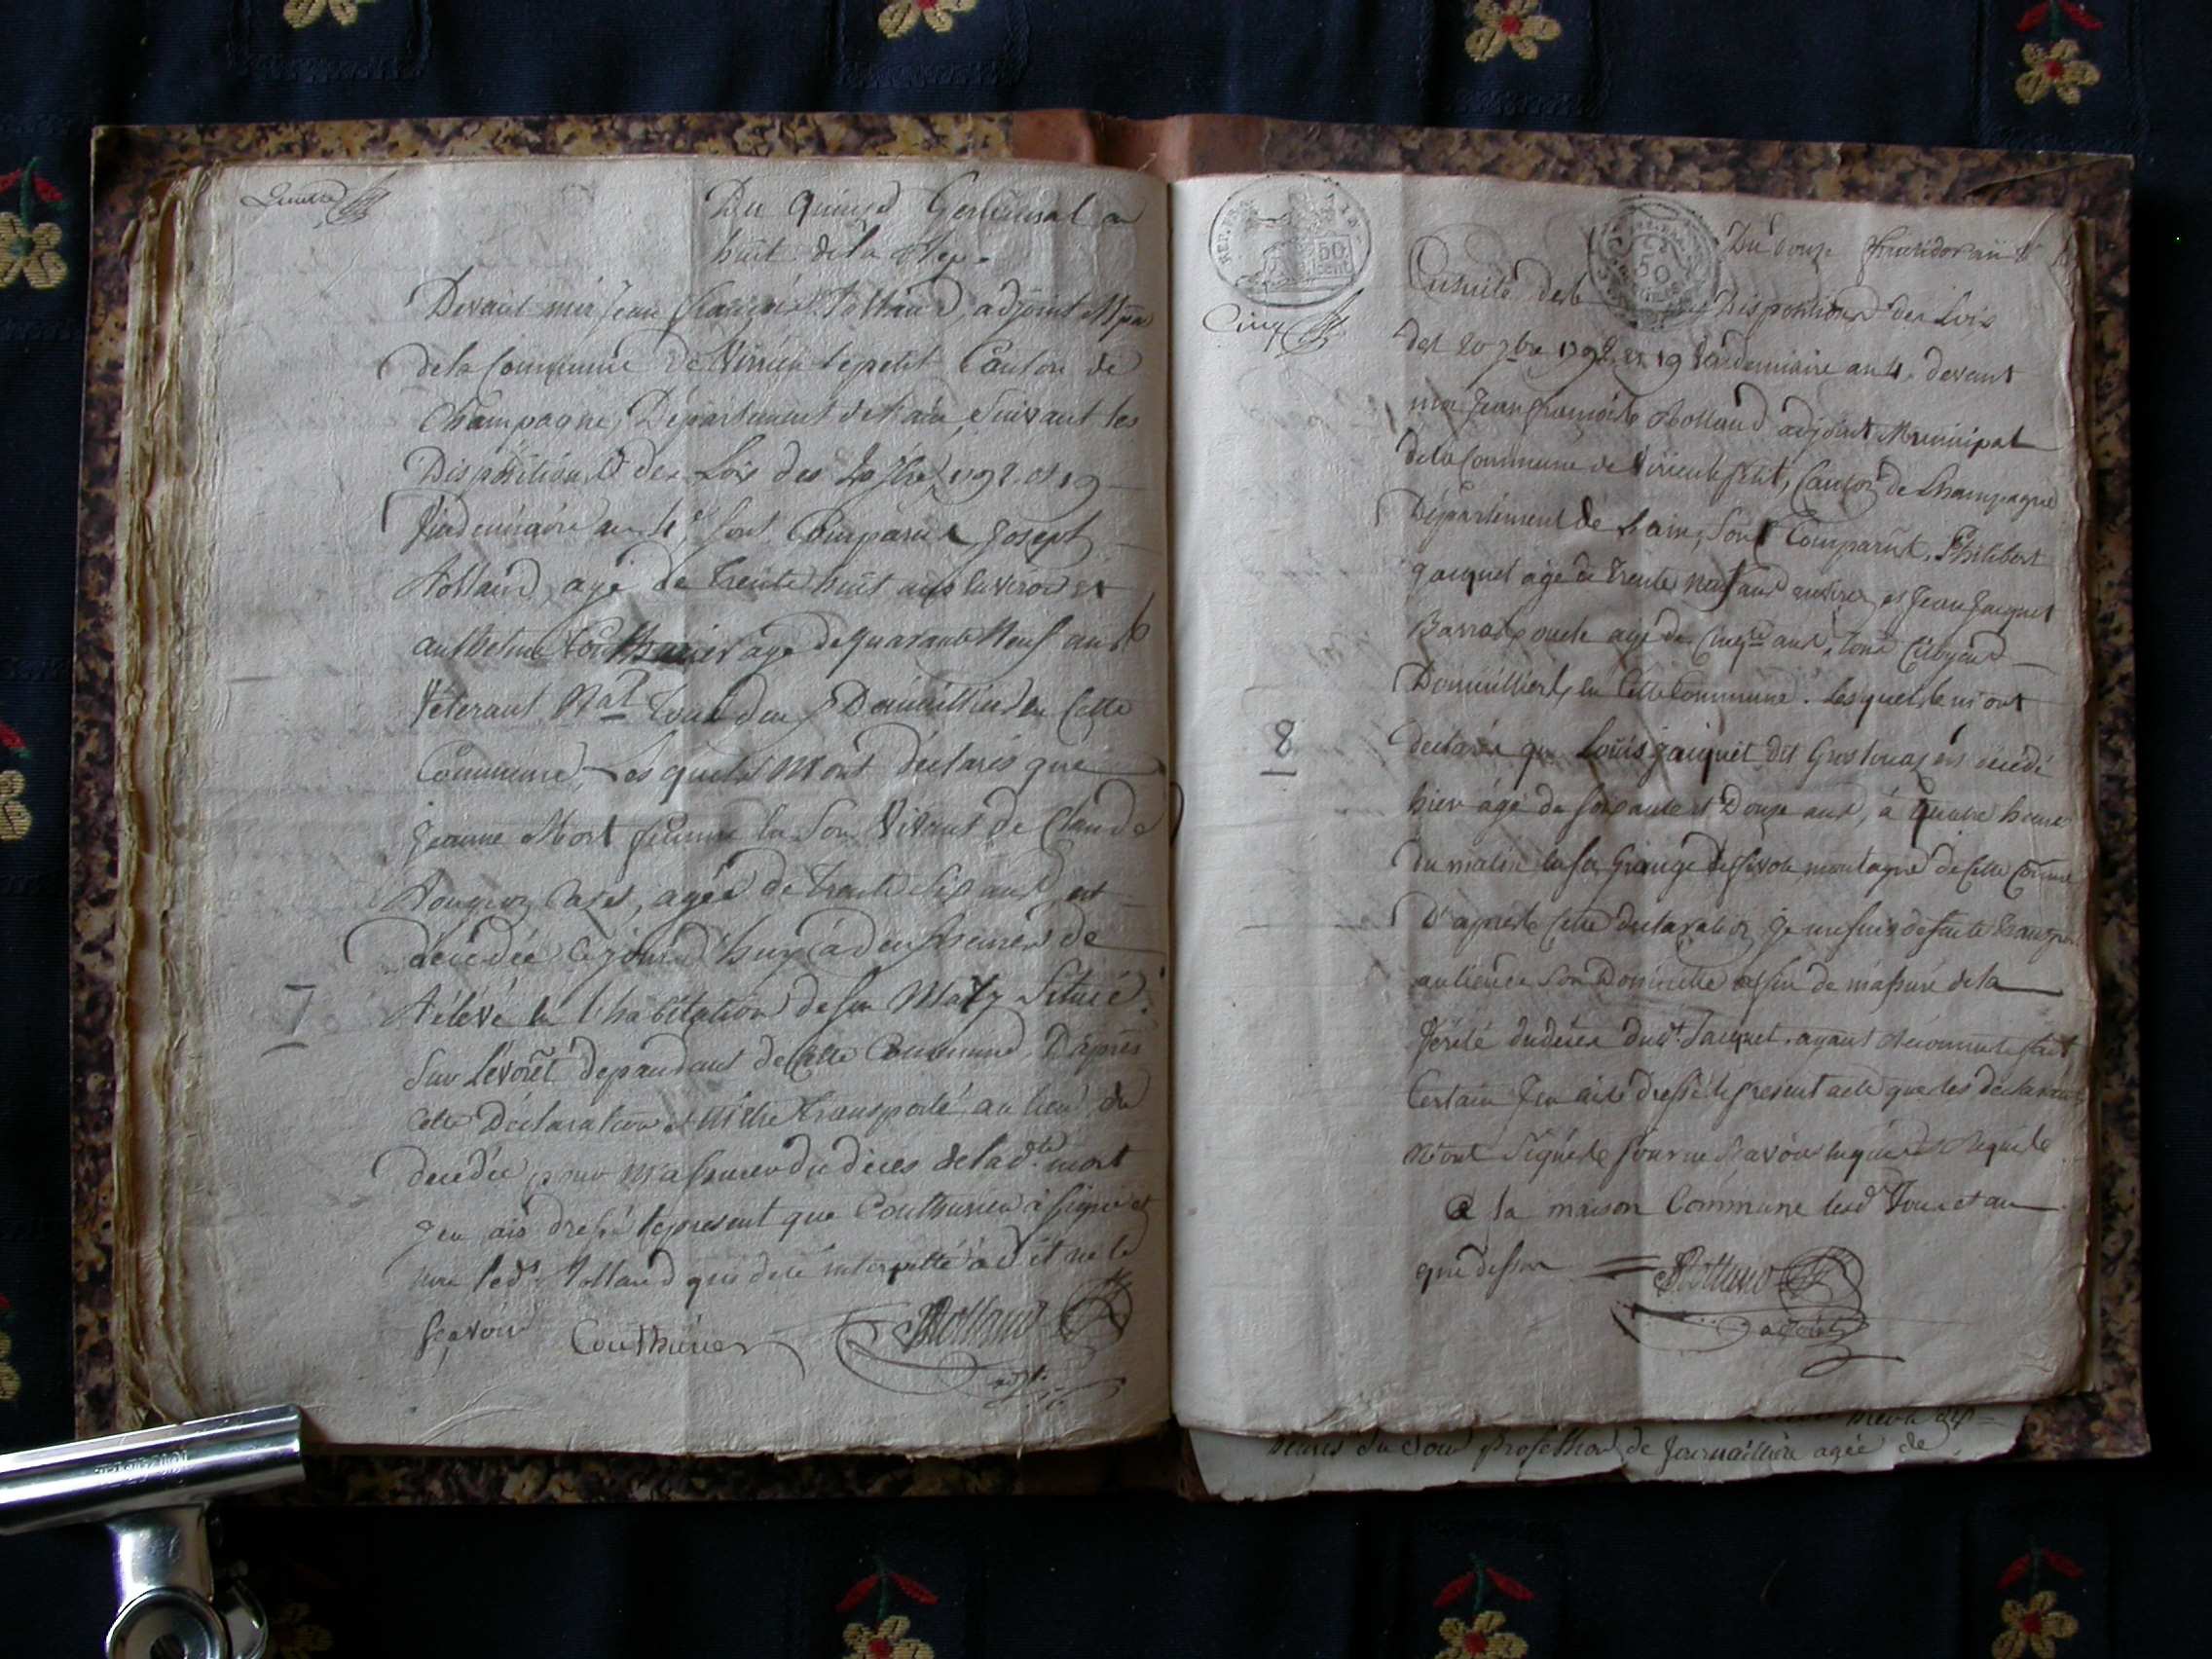 Du quinze Germinal an
huit de la Rep.
Devant moi Jean François Rolland adjoint Mpal
de la Commune de Virieu le petit Canton de
Champagne, Département de l'ain, Suivant les
Dispositions des Lois des 20 7bre 1792 et 19
Vindemiaire an 4e sont Comparus Joseph
Rolland, agé de trente huit ans laveron et
anthelme Couthurier agé de quarante Neuf ans
Véterant Nal tous deux Domicilliés en Cette
Commune, Lesquels M'ont déclarés que
Jeanne Mort femme en Son Vivant de Claude
agée de trente Six ans, est
décédée Ce jourd'huy à deux heures de
Rélevé en l'habitation de son Mary Situé
Sur Levoret dependant de Cette Commune, D'aprés
Cette Déclaration et M'être transporté au lieu du
decedée, pour M'assurer du déces de la dte mort
J'en ais dressé le present que Couthurier à signé et
non led. Rolland qui de ce interpellé à dit ne le
sçavoir
Couthurier
Rolland
adjt.
Quatre
7
REP. FRA.
50
cent
50
Du Douze fructidor an 8
Cinq
Ensuite des Dispositions des Lois
des 20 7bre 1792 et 19 Vendemiaire an 4. devant
moi Jean françois Rolland adjoint Municipal
de la Commune de Virieu le petit, Canton de Champagne
Département de Lain, Sont Comparut, Philibert
Jacquet agé de trente Neuf ans et Jean Jacquet
agé de Cinqte ans, tous Citoyens
Domicilliers en Cette Commune. Lesquels m'ont
declarés que Louis jaiquet dit Gros est décedé
hier ágé de soixante et Douze ans, à quatre heures
du matin en sa Grange montagne de Cette Comune
D'aprés Cette declaration je me suis de suite transporté
au lieu de Son Domicille affin de m'assuré de la
Vérité du déces dudt. Jacquet. ayant reconnu le fait
Certain J'en ai dressé le present acte que les declarants
N'ont Signés pour ne sçavoir enquis et requis
à la maison Commune lesd. Jour et an
que dessus
Rolland
adjoint
8
heures du Soir profession de Journailliere agée de